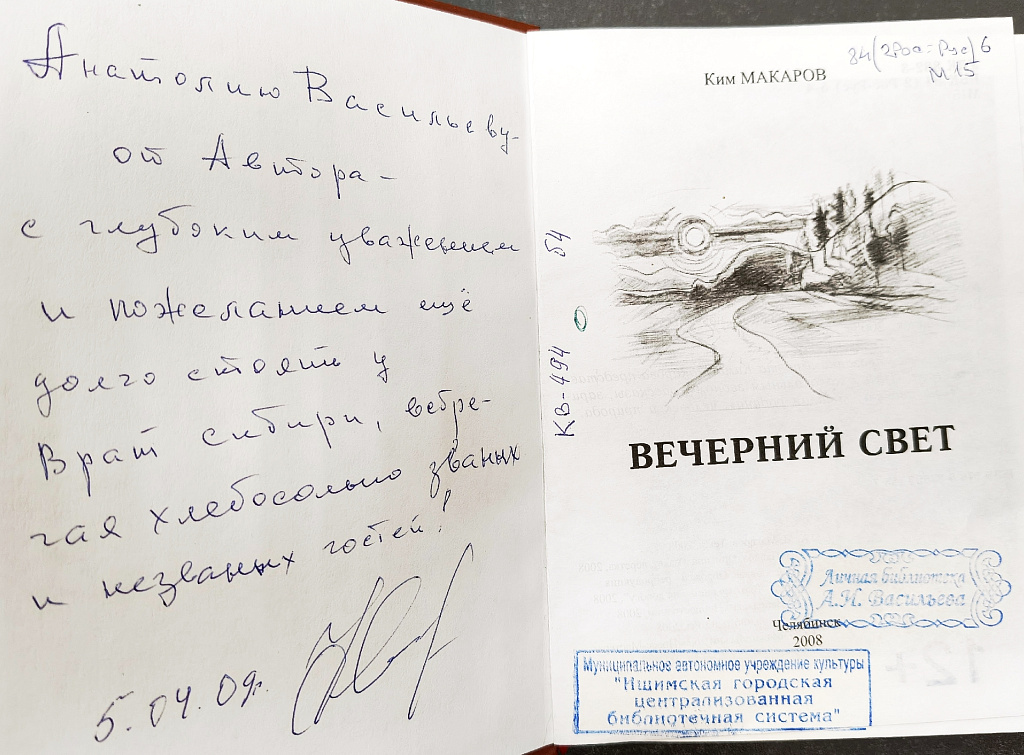 Анатолию Васильеву-
от Автора -
с глубоким уважением
и пожеланием ещё
долго стоять у
Врат Сибири, встре-
чая хлебосольно званых
и незваных гостей!
5.04.09г.
84(2Рос=Рус)6
М15
Ким МАКАРОВ
КВ-494 54
ВЕЧЕРНИЙ СВЕТ
Личная библиотека
А.Н. Васильева
Челябинск
2008
Муниципальное автономное учреждение культуры
"Ишимская городская
централизованная
библиотечная система"
12+